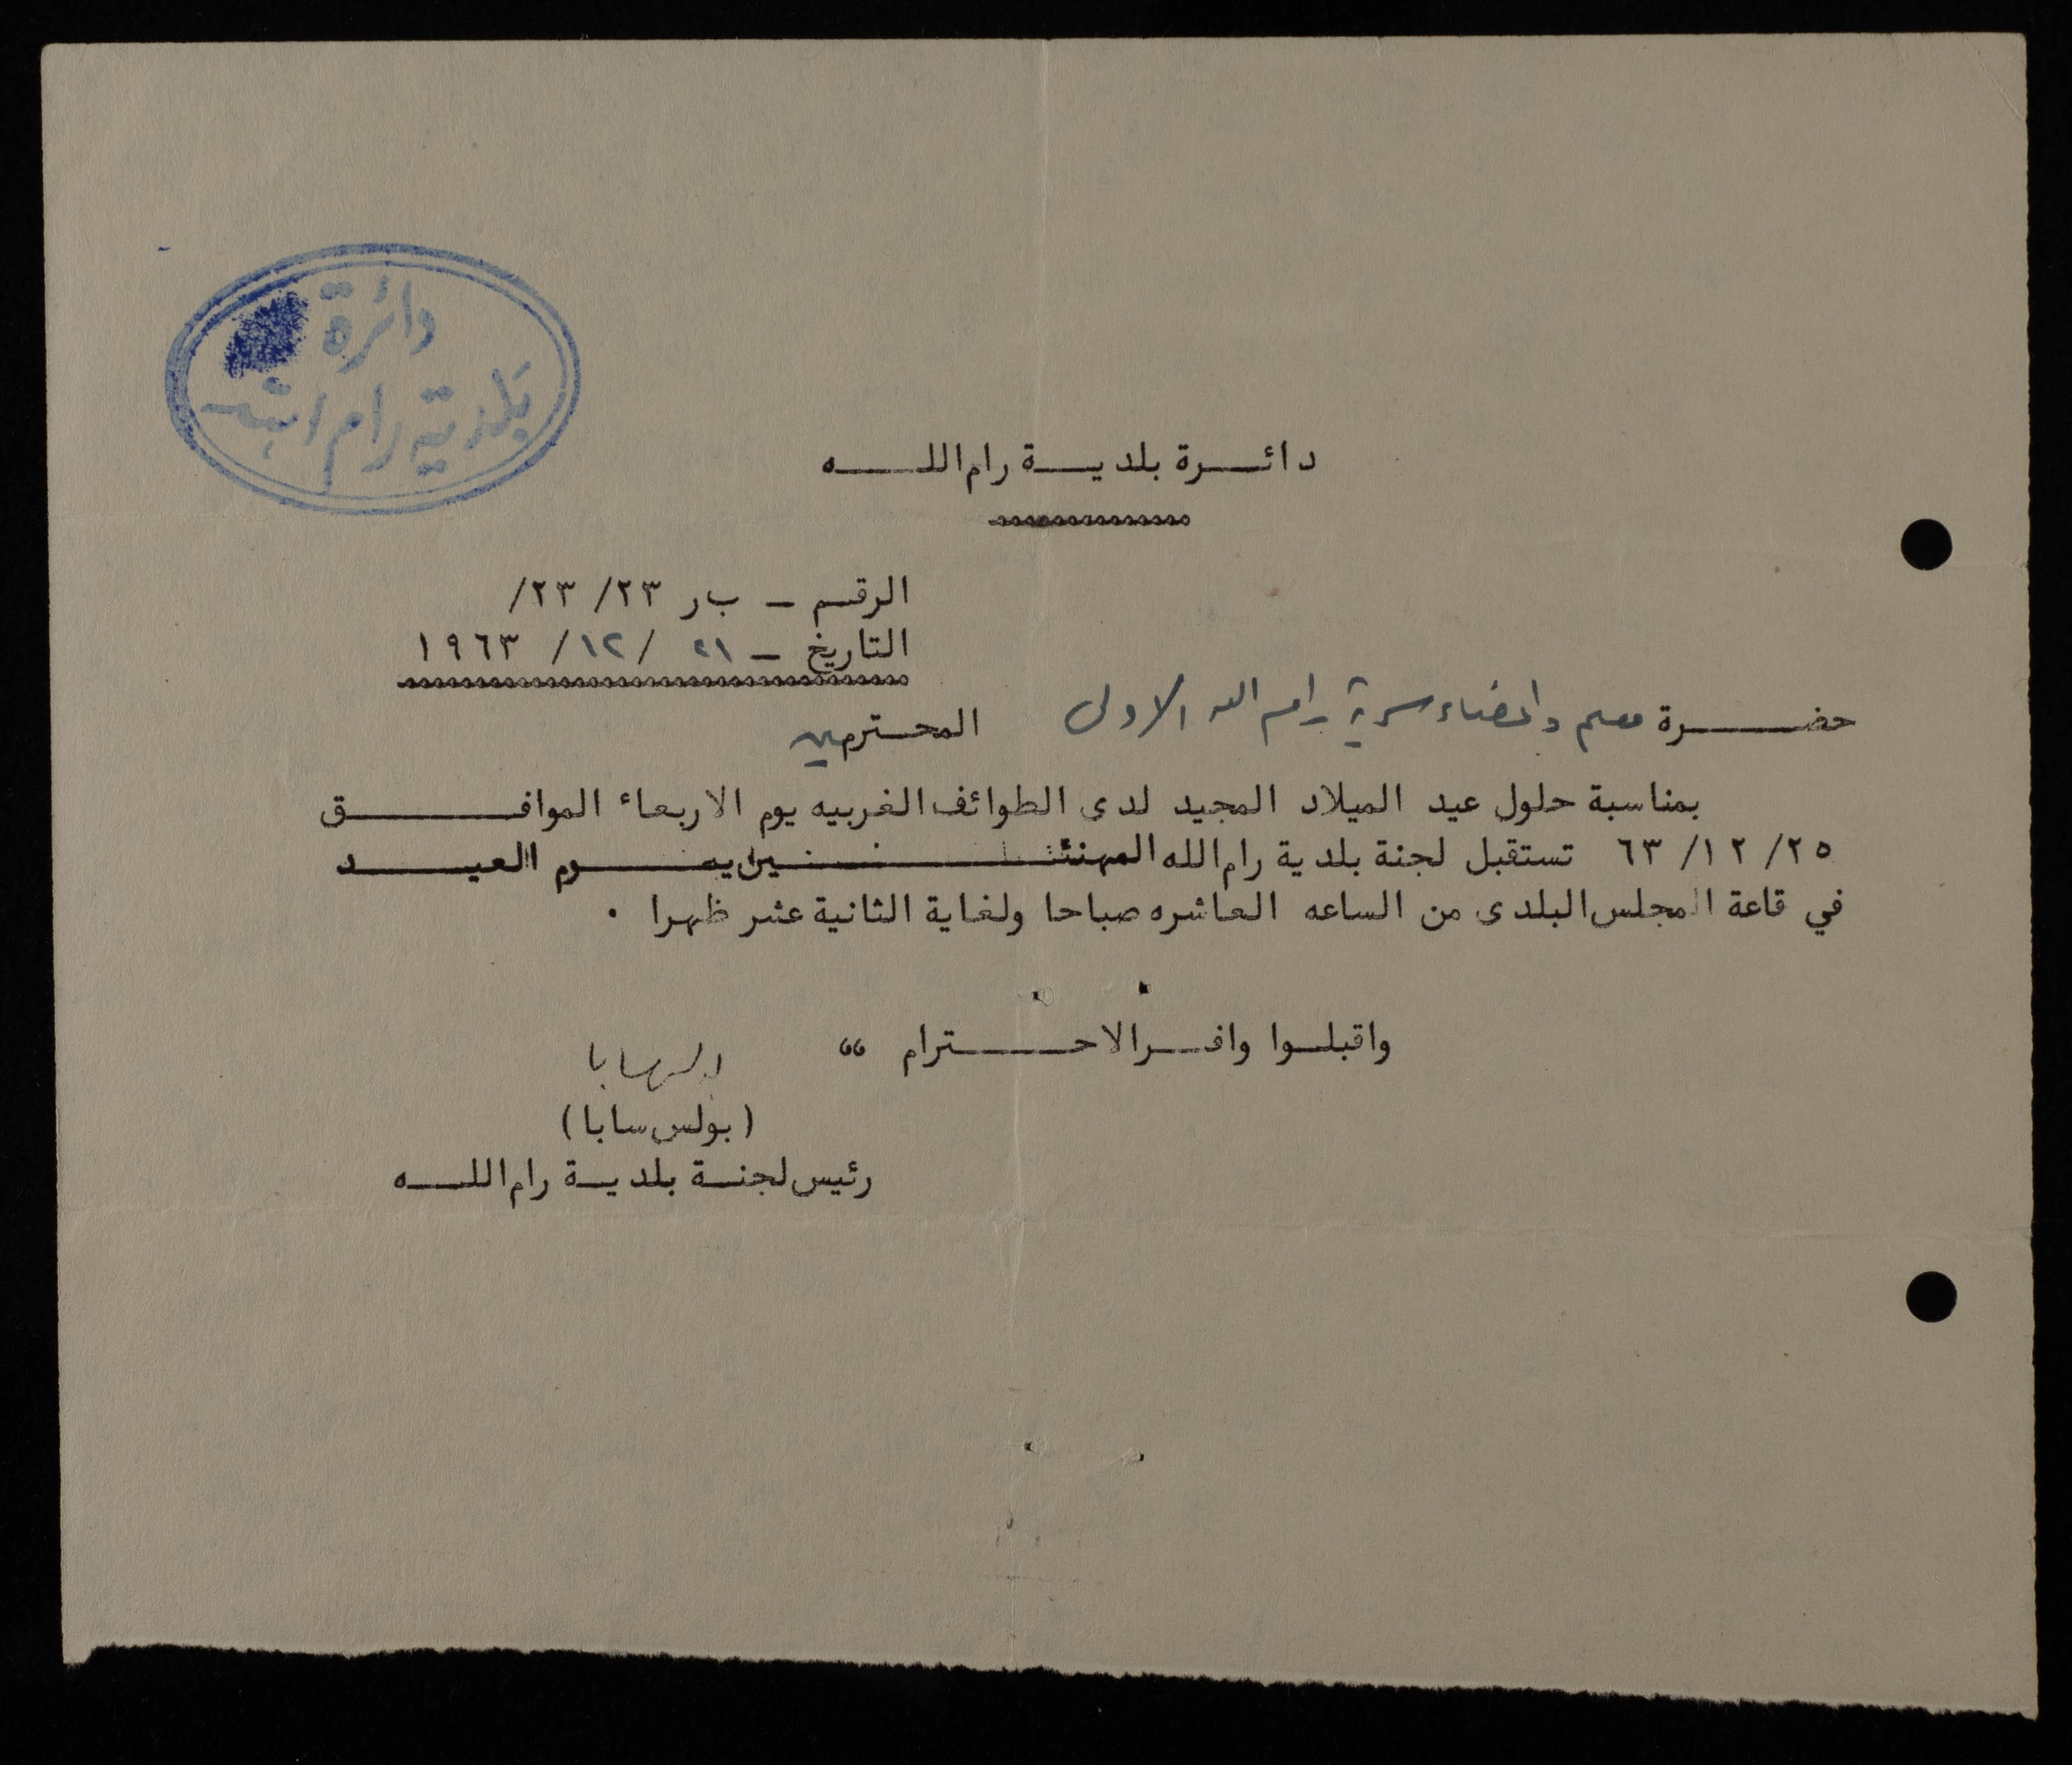 دائرة
بلدية رام الله
دائرة بلدية رام الله
الرقم - ب ر ٢٣/ ٢٣/
التاريخ - ٢١ /١٢/ ١٩٦٣
حضرة معلم واعضاء سرية رام الله الاولى المحترمين
بمناسبة حلول عيد الميلاد المجيد لدى الطوائف الغربيه يوم الاربعاء الموافق
٢٥/ ١٢/ ٦٣ تستقبل لجنة بلدية رام الله المهنئين يوم العيد
في قاعة المجلس البلدى من الساعه العاشره صباحا ولغاية الثانية عشر ظهرا .
واقبلوا وافر الاحترام ،،
(بولس سابا)
رئيس لجنة بلدية رام الله